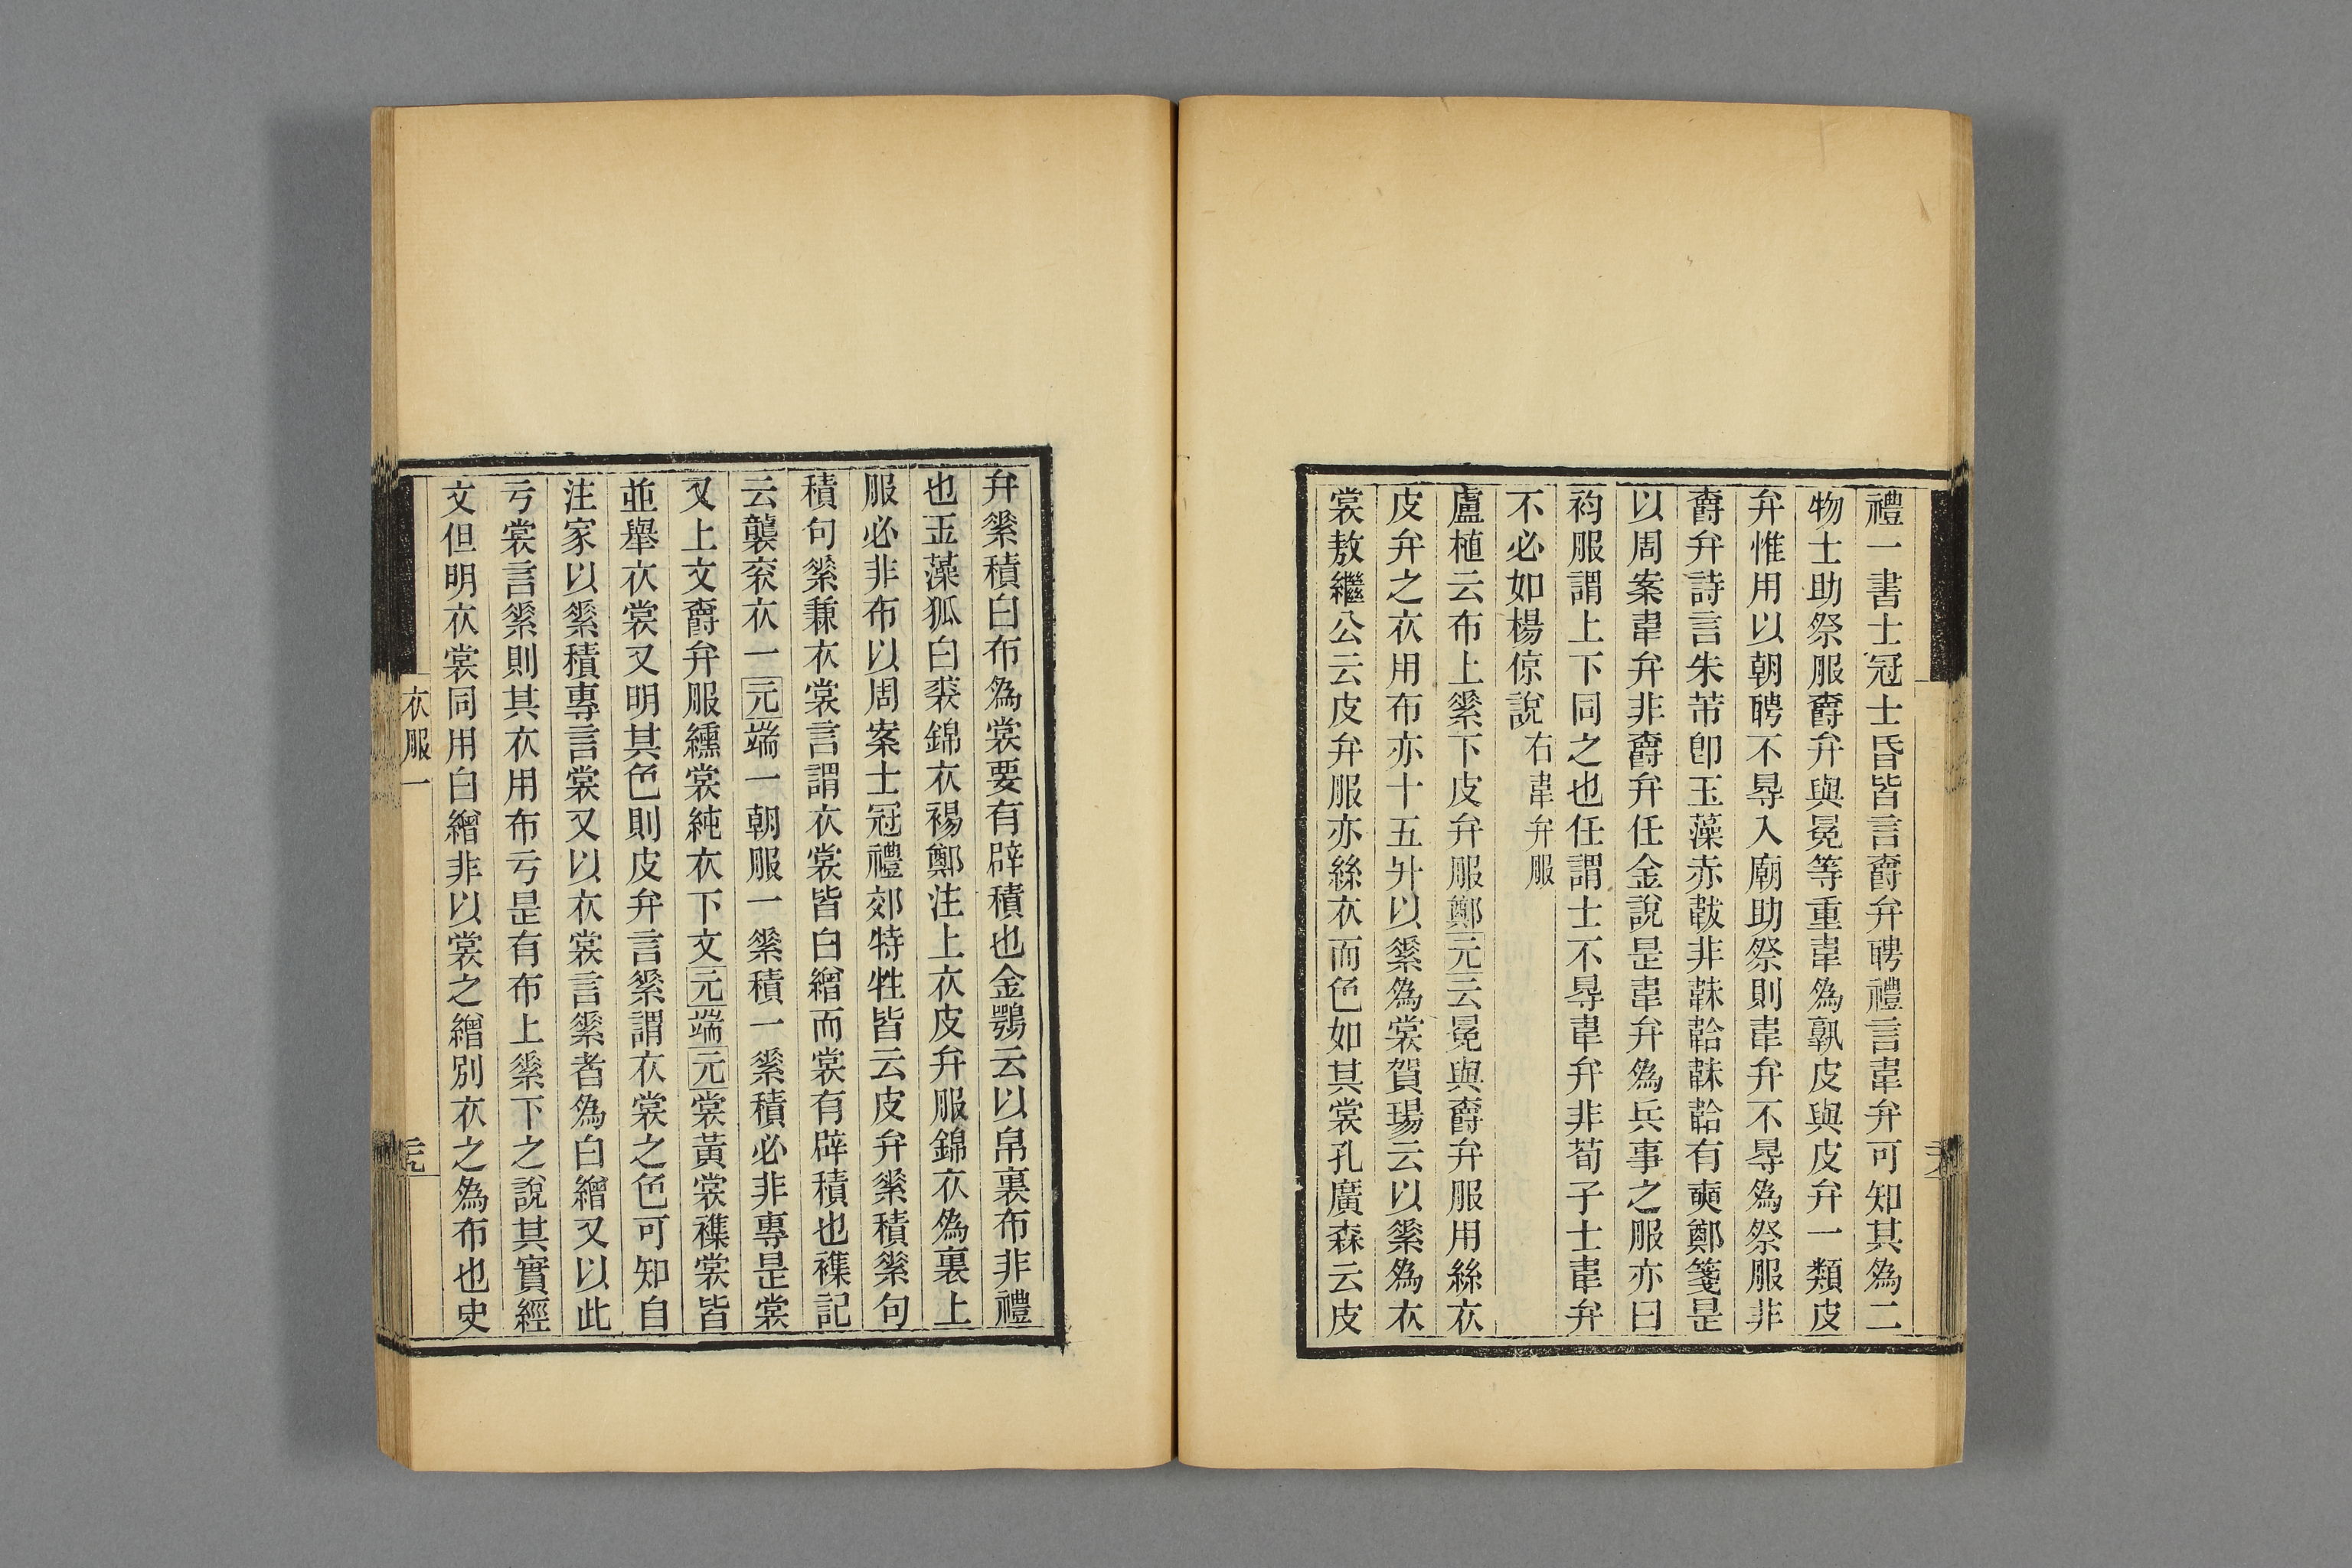 禮一書士冠士昏皆言爵弁聘禮言韋弁可知其爲二
物士助祭服爵弁與冕等重韋爲孰皮與皮弁一類皮
弁惟用以朝聘不㝵入廟助祭則韋弁不㝵爲祭服非
爵弁詩言朱芾卽玉藻赤韍非韎韐韎韐有奭鄭箋是
以周案韋弁非爵弁任金說是韋弁爲兵事之服亦曰
袀服謂上下同之也任謂士不㝵韋弁非荀子士韋弁
不必如楊倞說右韋弁服
盧植云布上素下皮弁服鄭元云冕與爵弁服用絲衣
皮弁之衣用布亦十五升以素爲裳賀瑒云以素爲衣
裳敖繼公云皮弁服亦絲衣而色如其裳孔廣森云皮
弁素積白布爲裳要有辟積也金鶚云以帛裏布非禮
也玉藻狐白裘錦衣裼鄭注上衣皮弁服錦衣爲裏上
服必非布以周案士冠禮郊特牲皆云皮弁素積素句
積句素兼衣裳言謂衣裳皆白繒而裳有辟積也襍記
云襲袞衣一元端一朝服一素積一素積必非專是裳
又上文爵弁服纁裳純衣下文元端元裳黃裳襍裳皆
並舉衣裳又明其色則皮弁言素謂衣裳之色可知自
注家以素積專言裳又以衣裳言素者爲白繒又以此
亏裳言素則其衣用布亏是有布上素下之說其實經
文但明衣裳同用白繒非以裳之繒別衣之爲布也史
衣服一